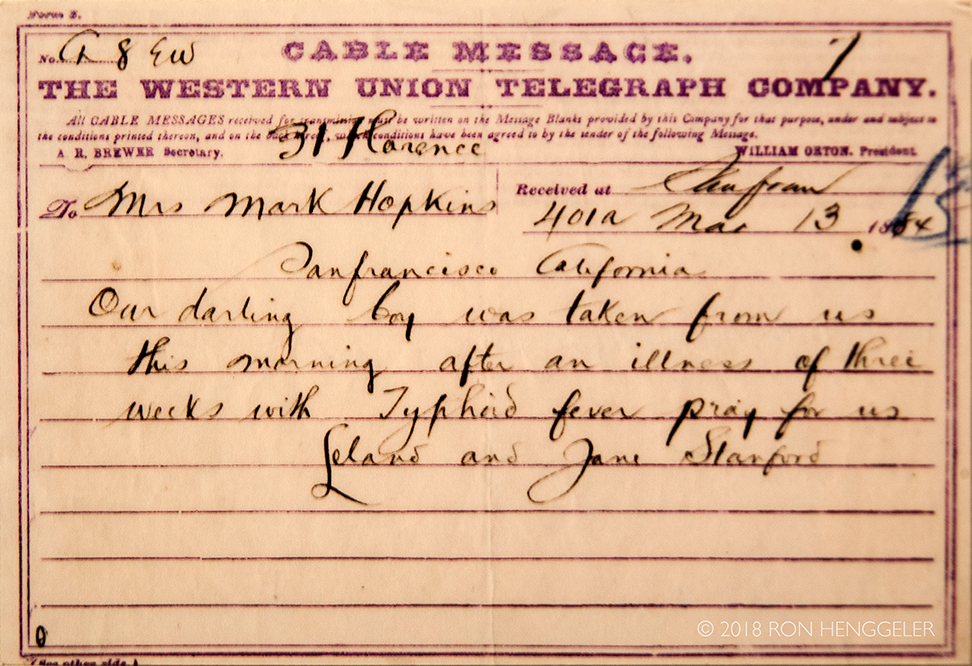 Form 2.
No. A 8 EW
CABLE MESSAGE.
THE WESTERN UNION TELEGRAPH COMPANY.
All CABLE MESSAGES received for transmission must be written on the Message Blanks provided by this Company for that purpose, under and subject to
the conditions printed thereon, and on the back hereof, which conditions have been agreed to by the sender of the following Message.
A. R. BREWER Secretary.
WILLIAM ORTON. President.
31 Florence
Received at Sanfran
To Mrs Mark Hopkins
401a Mar 13 1884
Sanfrancisco California
Our darling boy was taken from us
this morning after an illness of three
weeks with Typhoid fever pray for us
Leland and Jane Stanford
© 2018 RON HENGGELER
(See other side.)